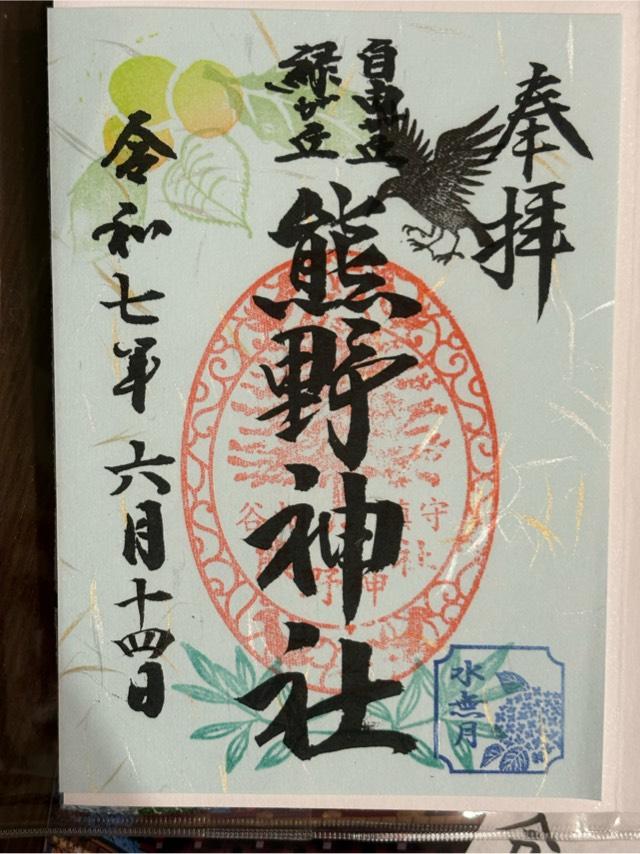 奉拝
自由が丘
緑が丘
熊野神社
令和七年 六月十四日
水無月